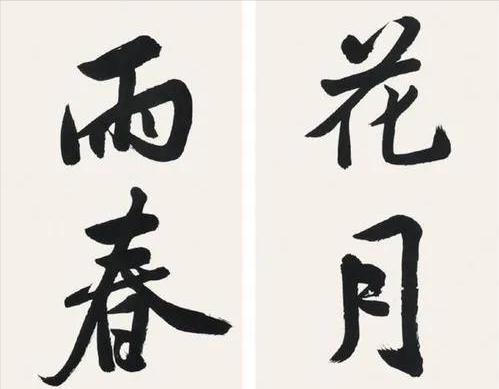 花月
雨春